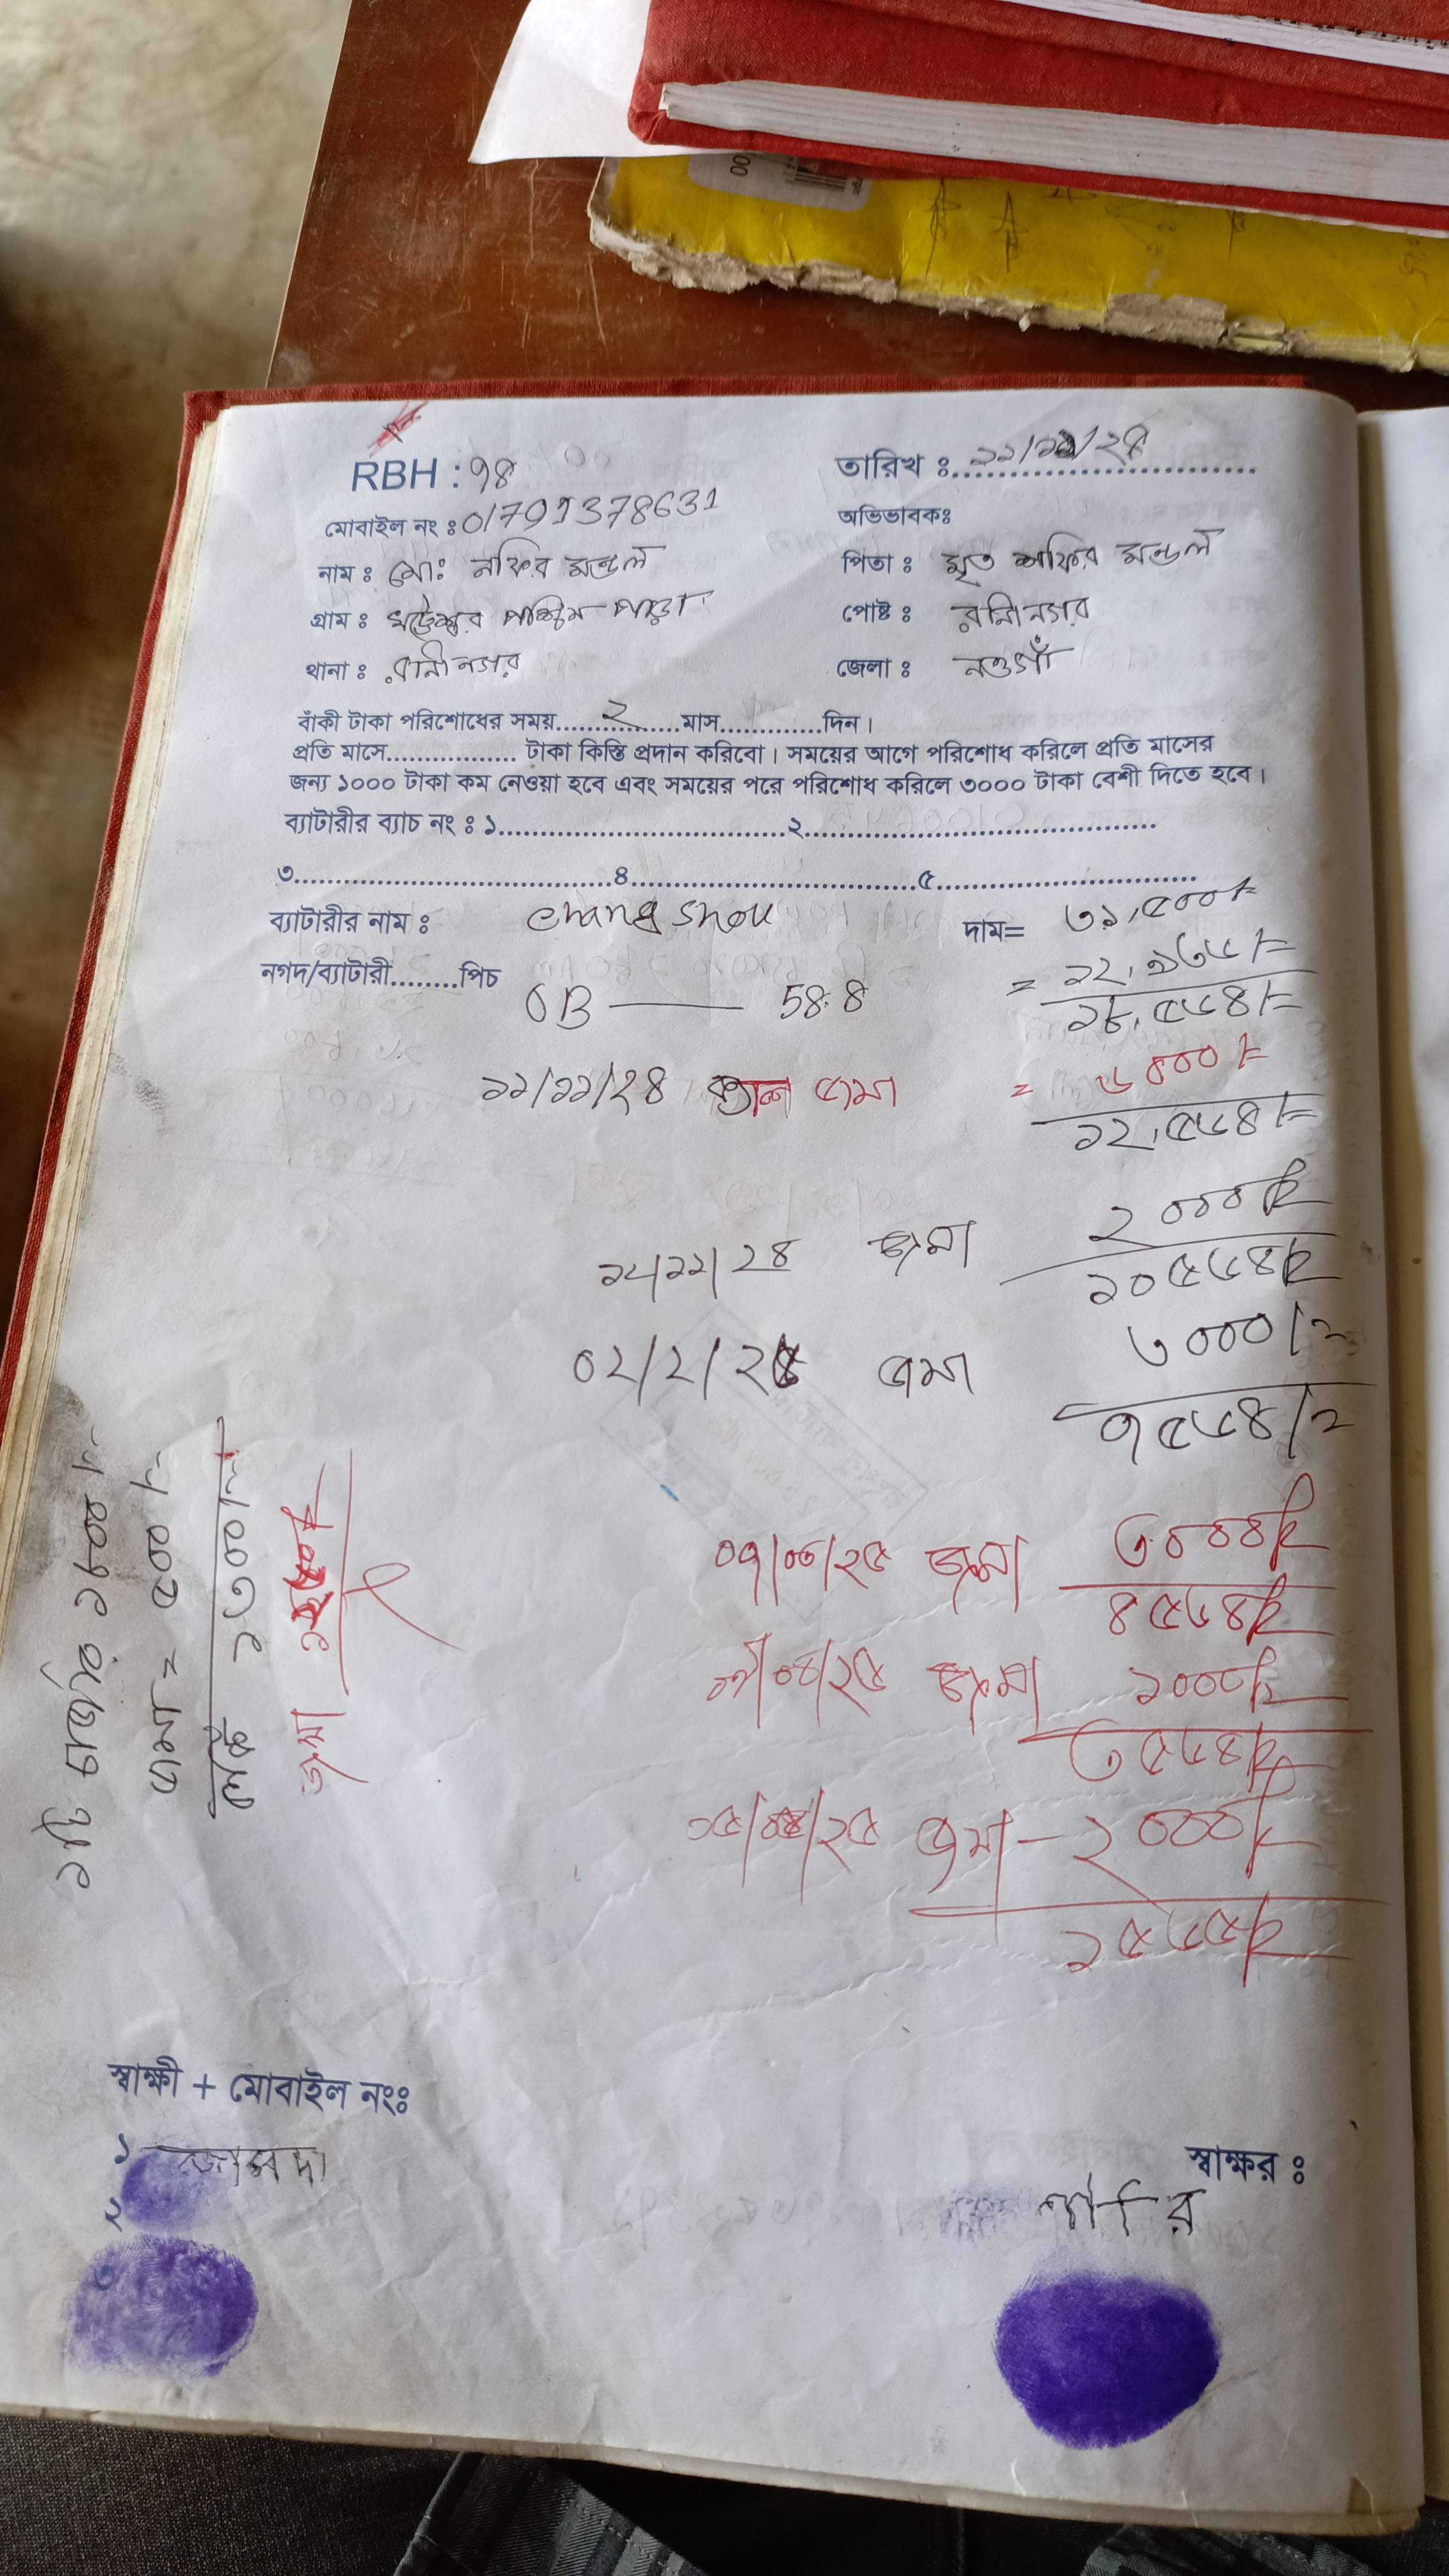 RBH : ৭৪
তারিখ ঃ ১১/১১/২৪
মোবাইল নং ঃ 01791378631
অভিভাবকঃ
নাম ঃ মোঃ নফির মন্ডল
পিতা ঃ মৃত শফির মন্ডল
গ্রাম ঃ পশ্চিম পাড়া
পোষ্ট ঃ রানীনগর
থানা ঃ রানীনগর
জেলা ঃ নওগাঁ
বাঁকী টাকা পরিশোধের সময়......২......মাস.............দিন।
প্রতি মাসে................. টাকা কিস্তি প্রদান করিবো। সময়ের আগে পরিশোধ করিলে প্রতি মাসের
জন্য ১০০০ টাকা কম নেওয়া হবে এবং সময়ের পরে পরিশোধ করিলে ৩০০০ টাকা বেশী দিতে হবে।
ব্যাটারীর ব্যাচ নং ঃ ১....................................২............................................
৩........................................৪.....................................৫.................................
ব্যাটারীর নাম ঃ Chang Shou দাম= ৩১,৫০০/=
নগদ/ব্যাটারী.........পিচ
OB — 58.8 = ১২,৯৩৬/=
১৮,৫৬৪/=
১১/১১/২৪ ক্যাশ জমা = ৬০০০/=
১২,৫৬৪/=
১৮/১১/২৪ জমা ২০০০/=
১০৫৬৪/=
০২/২/২৫ জমা ৩০০০/=
৭৫৬৪/=
০৭/০৩/২৫ জমা ৩০০০/=
৪৫৬৪/=
/০৪/২৫ জমা ১০০০/=
৩৫৬৪/=
জমা - ২০০০/=
১৫৬৫/=
জমা = ৫০০/=
বাকি ১৩০০/=
জমা
স্বাক্ষী + মোবাইল নংঃ
১
২
৩
স্বাক্ষর ঃ